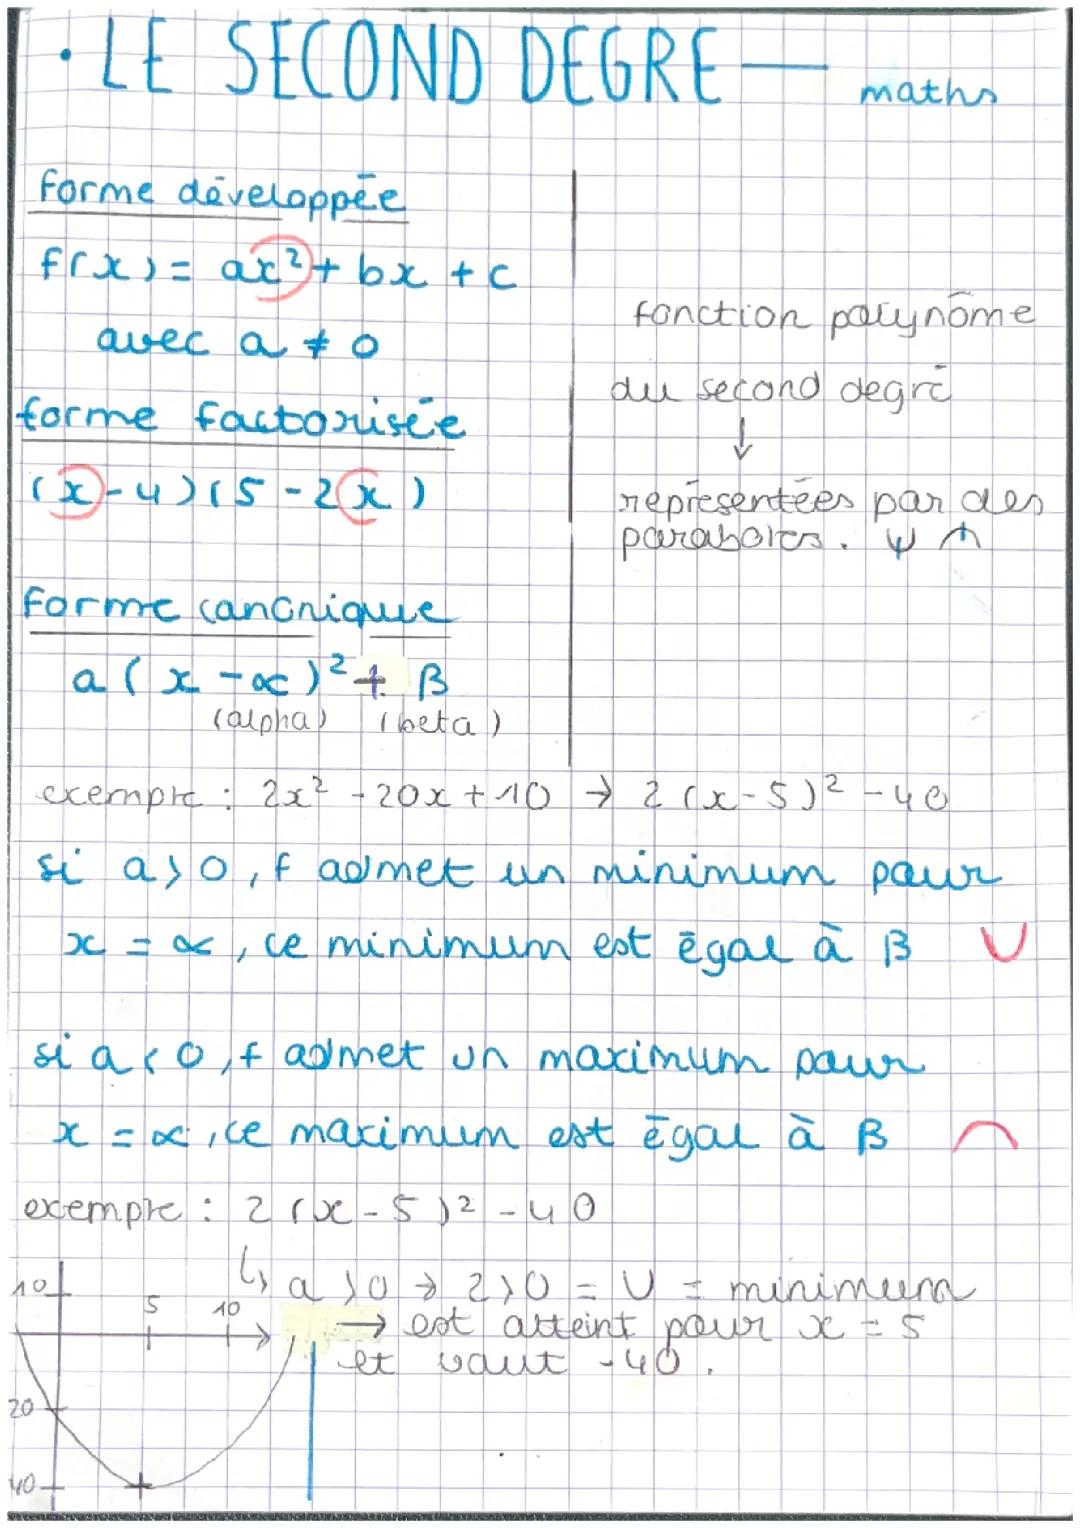 • LE SECOND DEGRE — maths
forme développée
f(x) = ax² + bx + c
avec a ≠ 0
forme factorisée
(x-4)(5-2x)
forme canonique
a(x-α)² + β
(alpha) (beta)
fonction polynôme
du second degré
↓
représentées par des
paraboles.
exemple : 2x² - 20x + 10 → 2(x-5)² - 40
si a > 0, f admet un minimum pour
x = α, ce minimum est égal à β ∪
si a < 0, f admet un maximum pour
x = α, ce maximum est égal à β ∩
exemple : 2(x-5)² - 40
↳ a > 0 → 2 > 0 = ∪ = minimum
→ est atteint pour x = 5
et vaut -40.
10
5 10
20
40